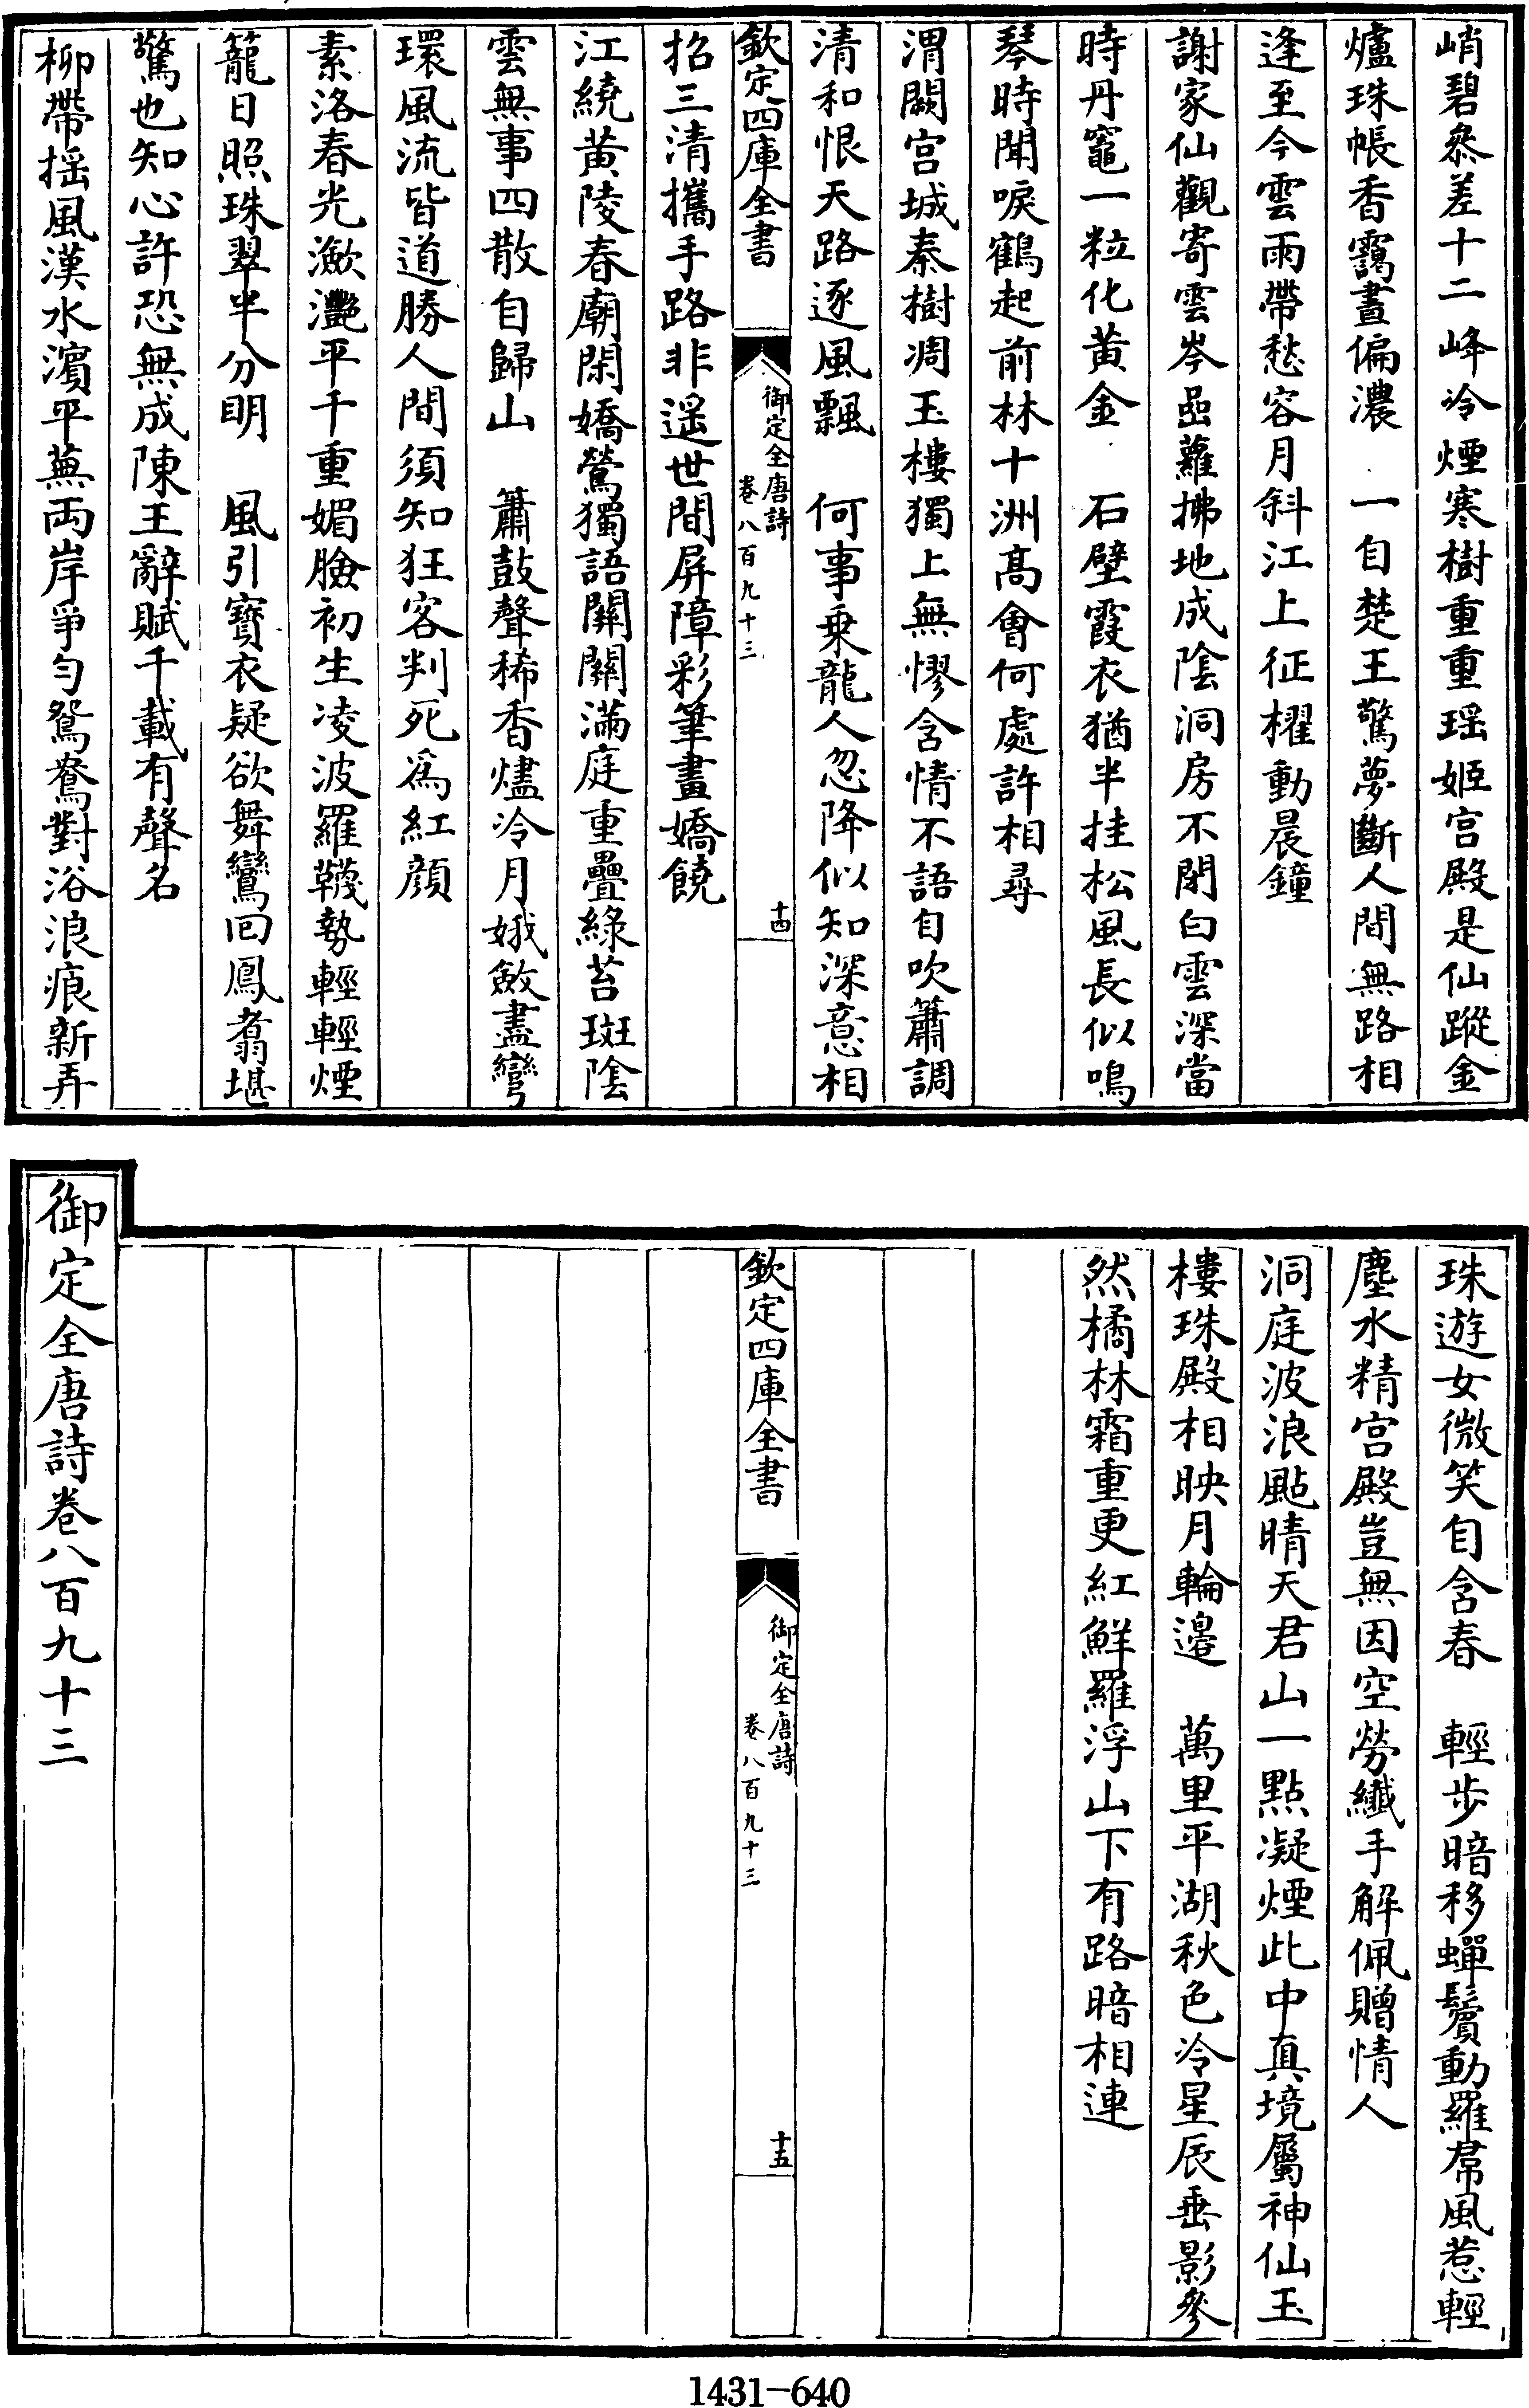 峭碧參差十二峰冷煙寒樹重重瑶姬宫殿是仙蹤金
爐珠帳香靄晝偏濃　一自楚王驚夢斷人間無路相
逢至今雲雨帶愁容月斜江上征櫂動晨鐘
謝家仙觀寄雲岑嵒蘿拂地成陰洞房不閉白雲深當
時丹竈一粒化黄金　石壁霞衣猶半挂松風長似鳴
琴時聞唳鶴起前林十洲髙會何處許相尋
渭闕宫城秦樹凋玉樓獨上無憀含情不語自吹簫調
清和恨天路逐風飄　何事乗龍人忽降似知深意相
欽定四庫全書
御定全唐詩
卷八百九十三
十四
招三清攜手路非遥世間屏障彩筆畫嬌饒
江繞黄陵春廟閑嬌鶯獨語關關滿庭重疊綠苔斑陰
雲無事四散自歸山　簫鼓聲稀香燼冷月娥斂盡彎
環風流皆道勝人間須知狂客判死為紅顔
素洛春光瀲灧平千重媚臉初生凌波羅韈勢輕輕煙
籠日照珠翠半分明　風引寶衣疑欲舞鸞回鳳翥堪
驚也知心許恐無成陳王辭賦千載有聲名
柳帶揺風漢水濱平蕪両岸爭勻鴛鴦對浴浪痕新弄
珠遊女微笑自含春　輕步暗移蟬鬢動羅帬風惹輕
塵水精宫殿豈無因空勞纖手解佩贈情人
洞庭波浪颭晴天君山一點凝煙此中真境屬神仙玉
樓珠殿相映月輪邉　萬里平湖秋色冷星辰垂影參
然橘林霜重更紅鮮羅浮山下有路暗相連
欽定四庫全書
御定全唐詩
卷八百九十三
十五
御定全唐詩卷八百九十三
1431-640